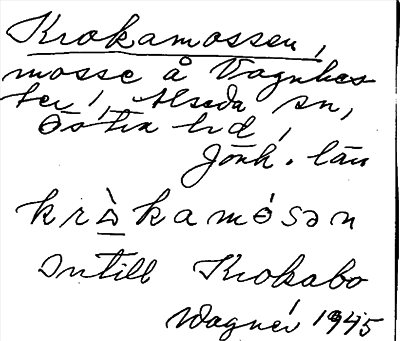 Krokamossen,
mosse å Vagnhes-
ter, Alseda sn,
Östra hd,
Jönk. län
kròkamósən
Intill Krokabo
Wagnér 1945